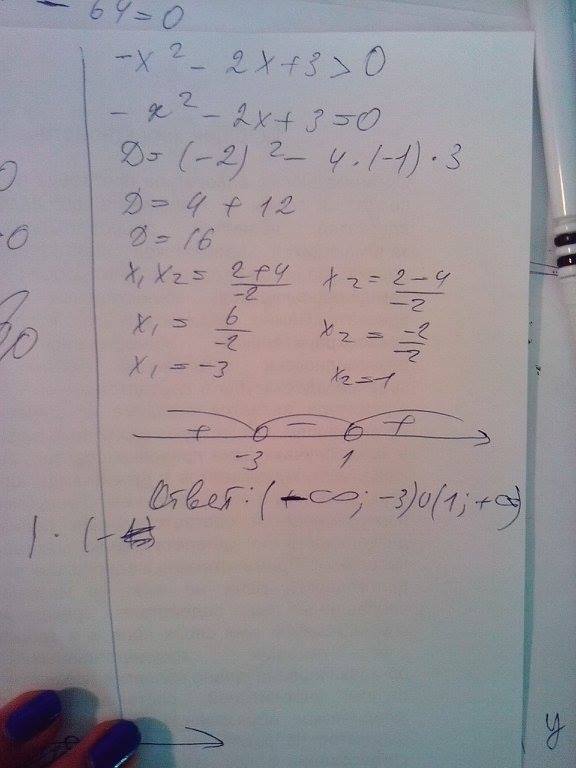 - 64 = 0
-x² - 2x + 3 > 0
-x² - 2x + 3 = 0
D = (-2)² - 4 · (-1) · 3
D = 4 + 12
D = 16
x₁ x₂ = (2+4)/-2    x₂ = (2-4)/-2
x₁ = 6/-2    x₂ = -2/-2
x₁ = -3    x₂ = 1
+ - +
-3 1
Ответ: (-∞; -3) ∪ (1; +∞)
1 · (-
y